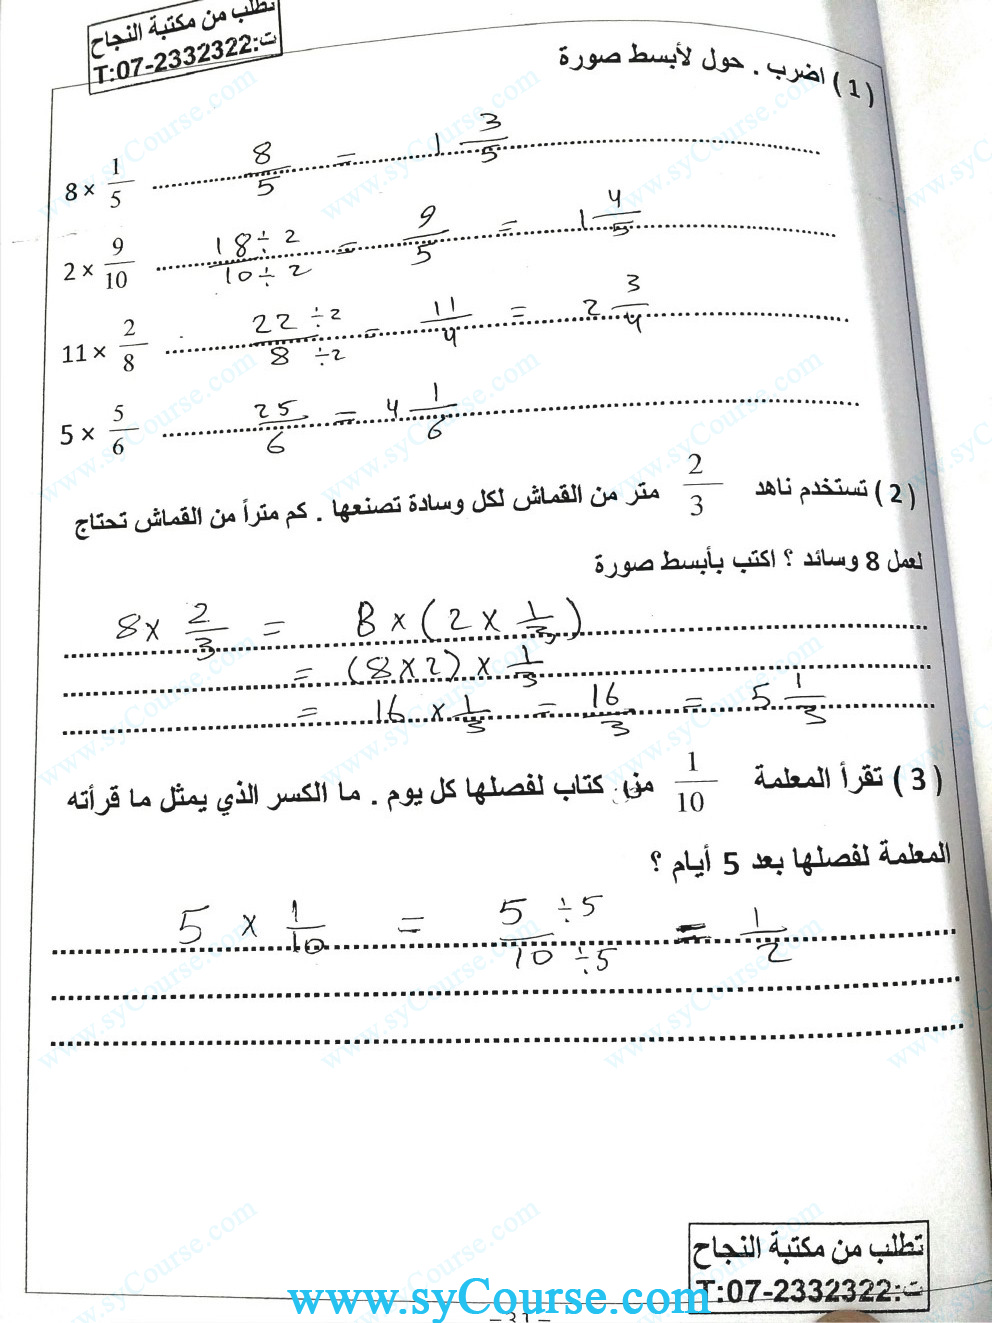 تطلب من مكتبة النجاح
ت:T:07-2332322
( 1 ) اضرب . حول لأبسط صورة
8 × 1/5 8/5 = 1 3/5
2 × 9/10 18÷2/10÷2 = 9/5 = 1 4/5
11 × 2/8 22÷2/8÷2 = 11/4 = 2 3/4
5 × 5/6 25/6 = 4 1/6
( 2 ) تستخدم ناهد 2/3 متر من القماش لكل وسادة تصنعها . كم متراً من القماش تحتاج
لعمل 8 وسائد ؟ اكتب بأبسط صورة
8 × 2/3 = 8 × ( 2 × 1/3 )
= (8 × 2) × 1/3
= 16 × 1/3 = 16/3 = 5 1/3
( 3 ) تقرأ المعلمة 1/10 من كتاب لفصلها كل يوم . ما الكسر الذي يمثل ما قرأته
المعلمة لفصلها بعد 5 أيام ؟
5 × 1/10 = 5÷5/10÷5 = 1/2
تطلب من مكتبة النجاح
ت:T:07-2332322
www.syCourse.com
–31–